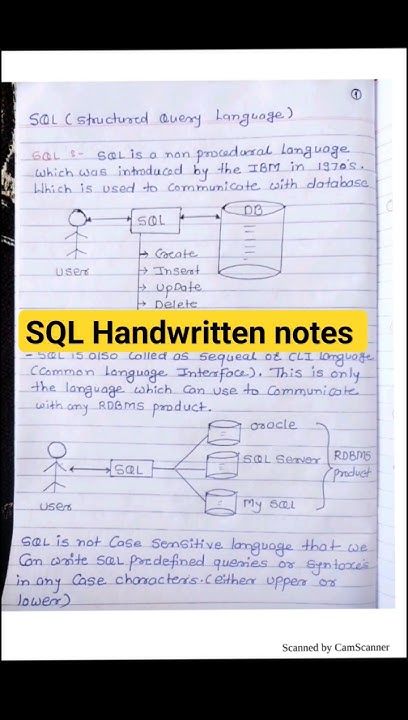 1
SQL (Structured Query Language)
SQL :- SQL is a non procedural language
which was introduced by the IBM in 1970's.
Which is used to communicate with database
SQL
DB
User
→ Create
→ Insert
→ UpDate
→ Delete
SQL Handwritten notes
- SQL is also called as sequeal or CLI language
(Common Language Interface). This is only
the language which can use to communicate
with any RDBMS product.
oracle
SQL
SQL Server
RDBMS
product
User
My SQL
SQL is not Case Sensitive language that we
Can write SQL predefined queries or syntaxes
in any Case characters.(either upper or
lower)
Scanned by CamScanner